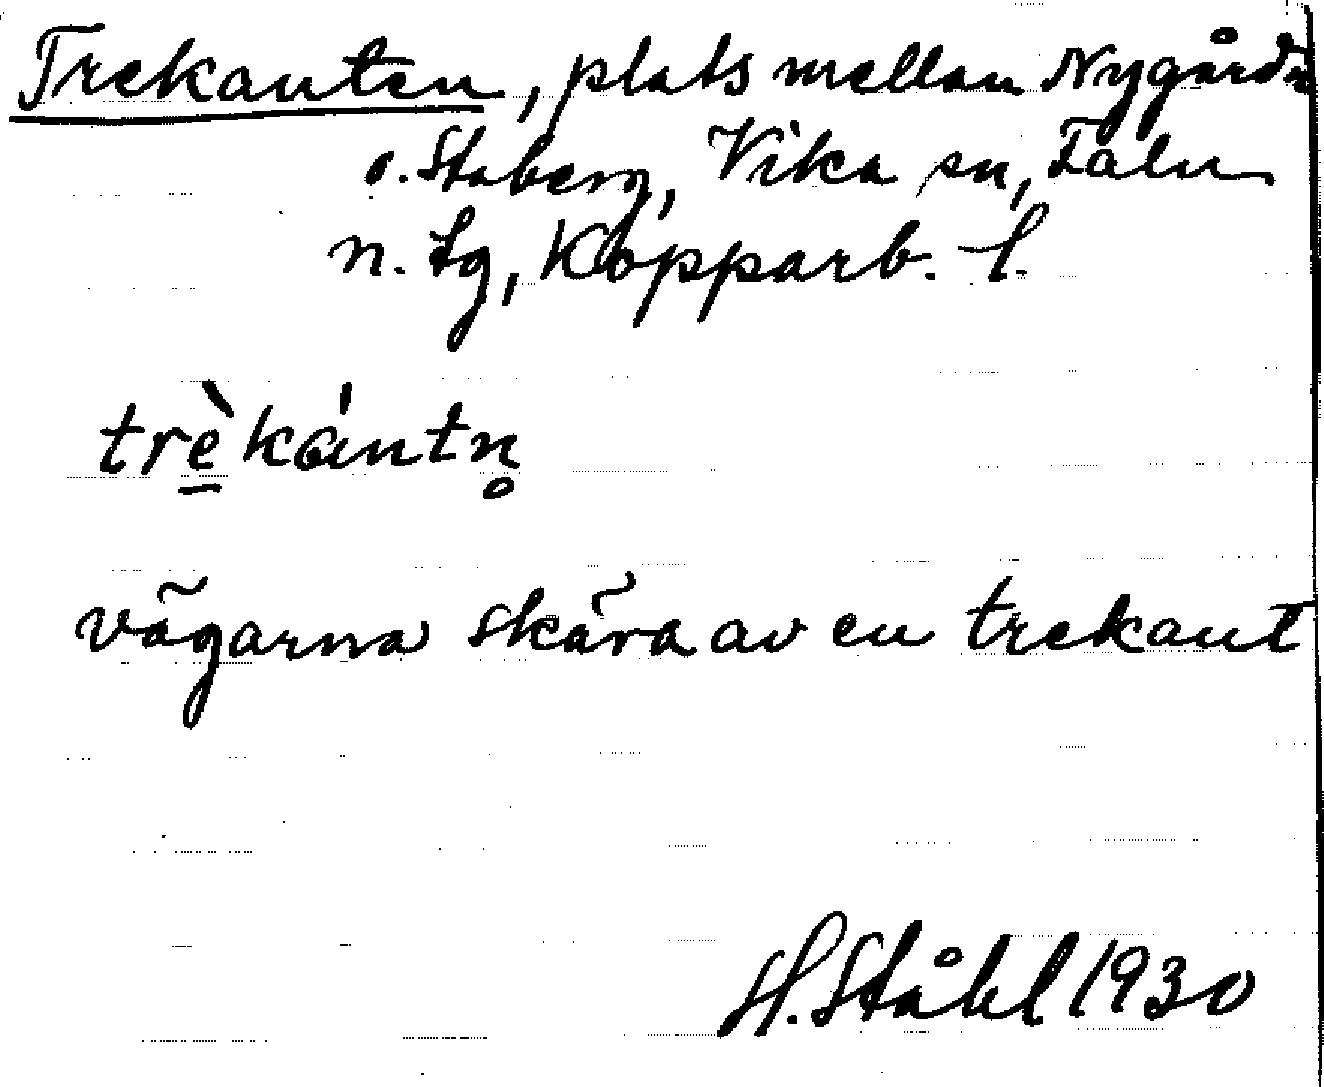 Trekanten, plats mellan Nygårdn
o. Staberg, Vika sn, Falu
n. tg, Kopparb. l.
trè̱kántn̥
vägarna skära av en trekant
H. Ståhl 1930